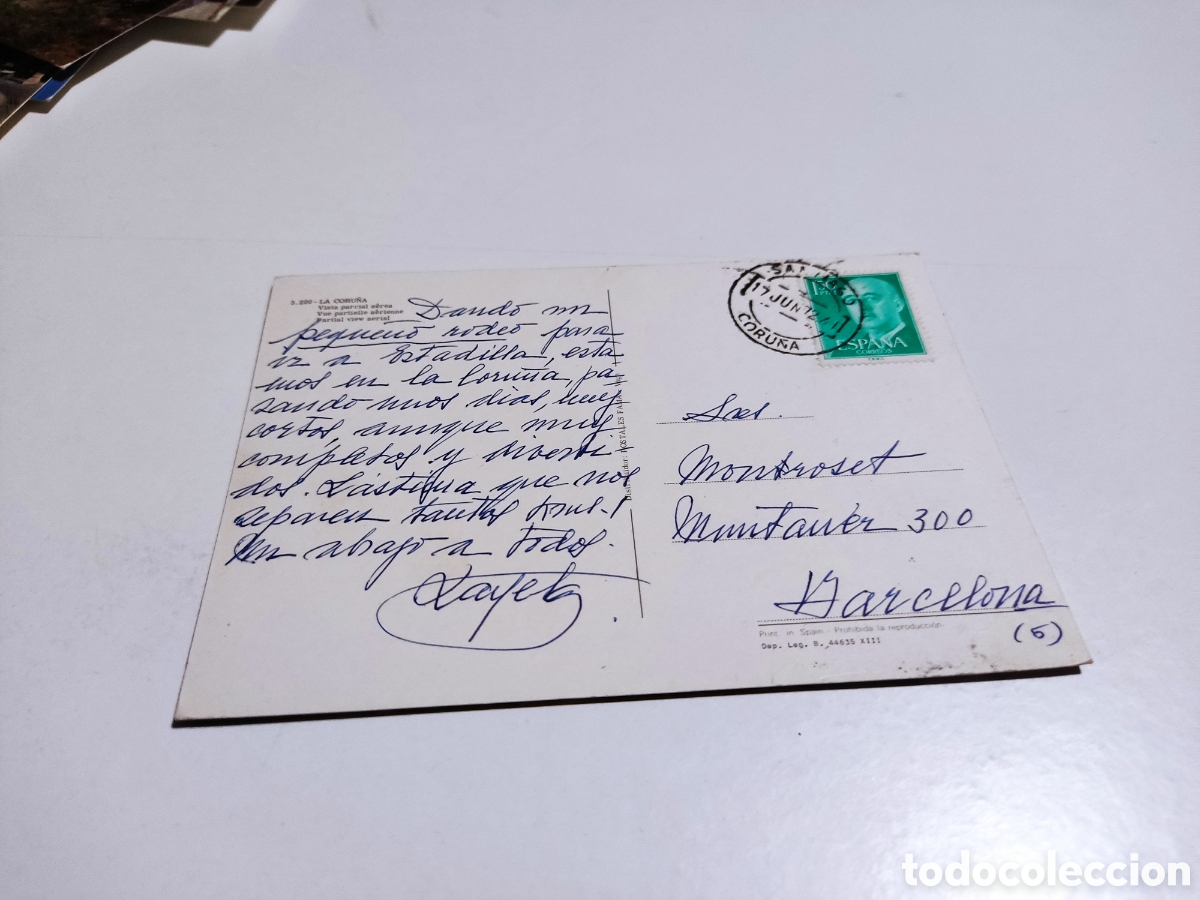 5.200 - LA CORUÑA
Vista parcial aérea
Vue partielle aérienne
Partial view aerial
Dando un
pequeño rodeo para
ir a Estadilla, esta
mos en la Coruña, pa
sando unos dias, muy
cortos, aunque muy
completos y diverti
dos. Lástima que nos
separen tantos kms.!
Un abrazo a todos.
Distribuidor: POSTALES FAMA
SANTIAGO
17 JUN
CORUÑA
ESPAÑA
CORREOS
Sres.
Montroset
Muntaner 300
Barcelona
(5)
Print. in Spain - Prohibida la reproducción
Dep. Leg. B., 44635 XIII
todocoleccion